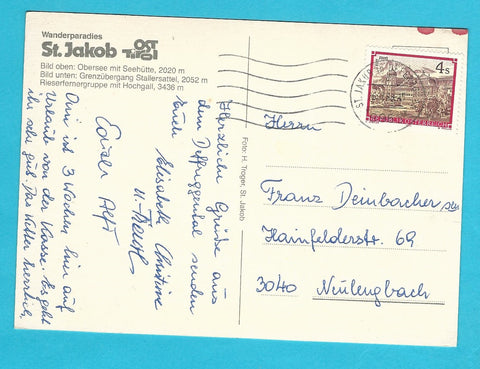 Wanderparadies
St. Jakob OST Tirol
Bild oben: Obersee mit Seehütte, 2020 m
Bild unten: Grenzübergang Stallersattel, 2052 m
Rieserfernergruppe mit Hochgall, 3436 m
Herzliche Grüße aus
dem Defreggental senden
Euch
Elisabeth Christine
u.
Omi ist 3 Wochen hier auf
Urlaub von der Kasse. Es geht
ihr sehr gut. Das Wetter herrlich,
Foto: H. Troger, St. Jakob
4 S
REPUBLIK ÖSTERREICH
ST. JAKOB
Herrn
Franz Deinbacher sen.
Hainfelderstr. 69
3040 Neulengbach